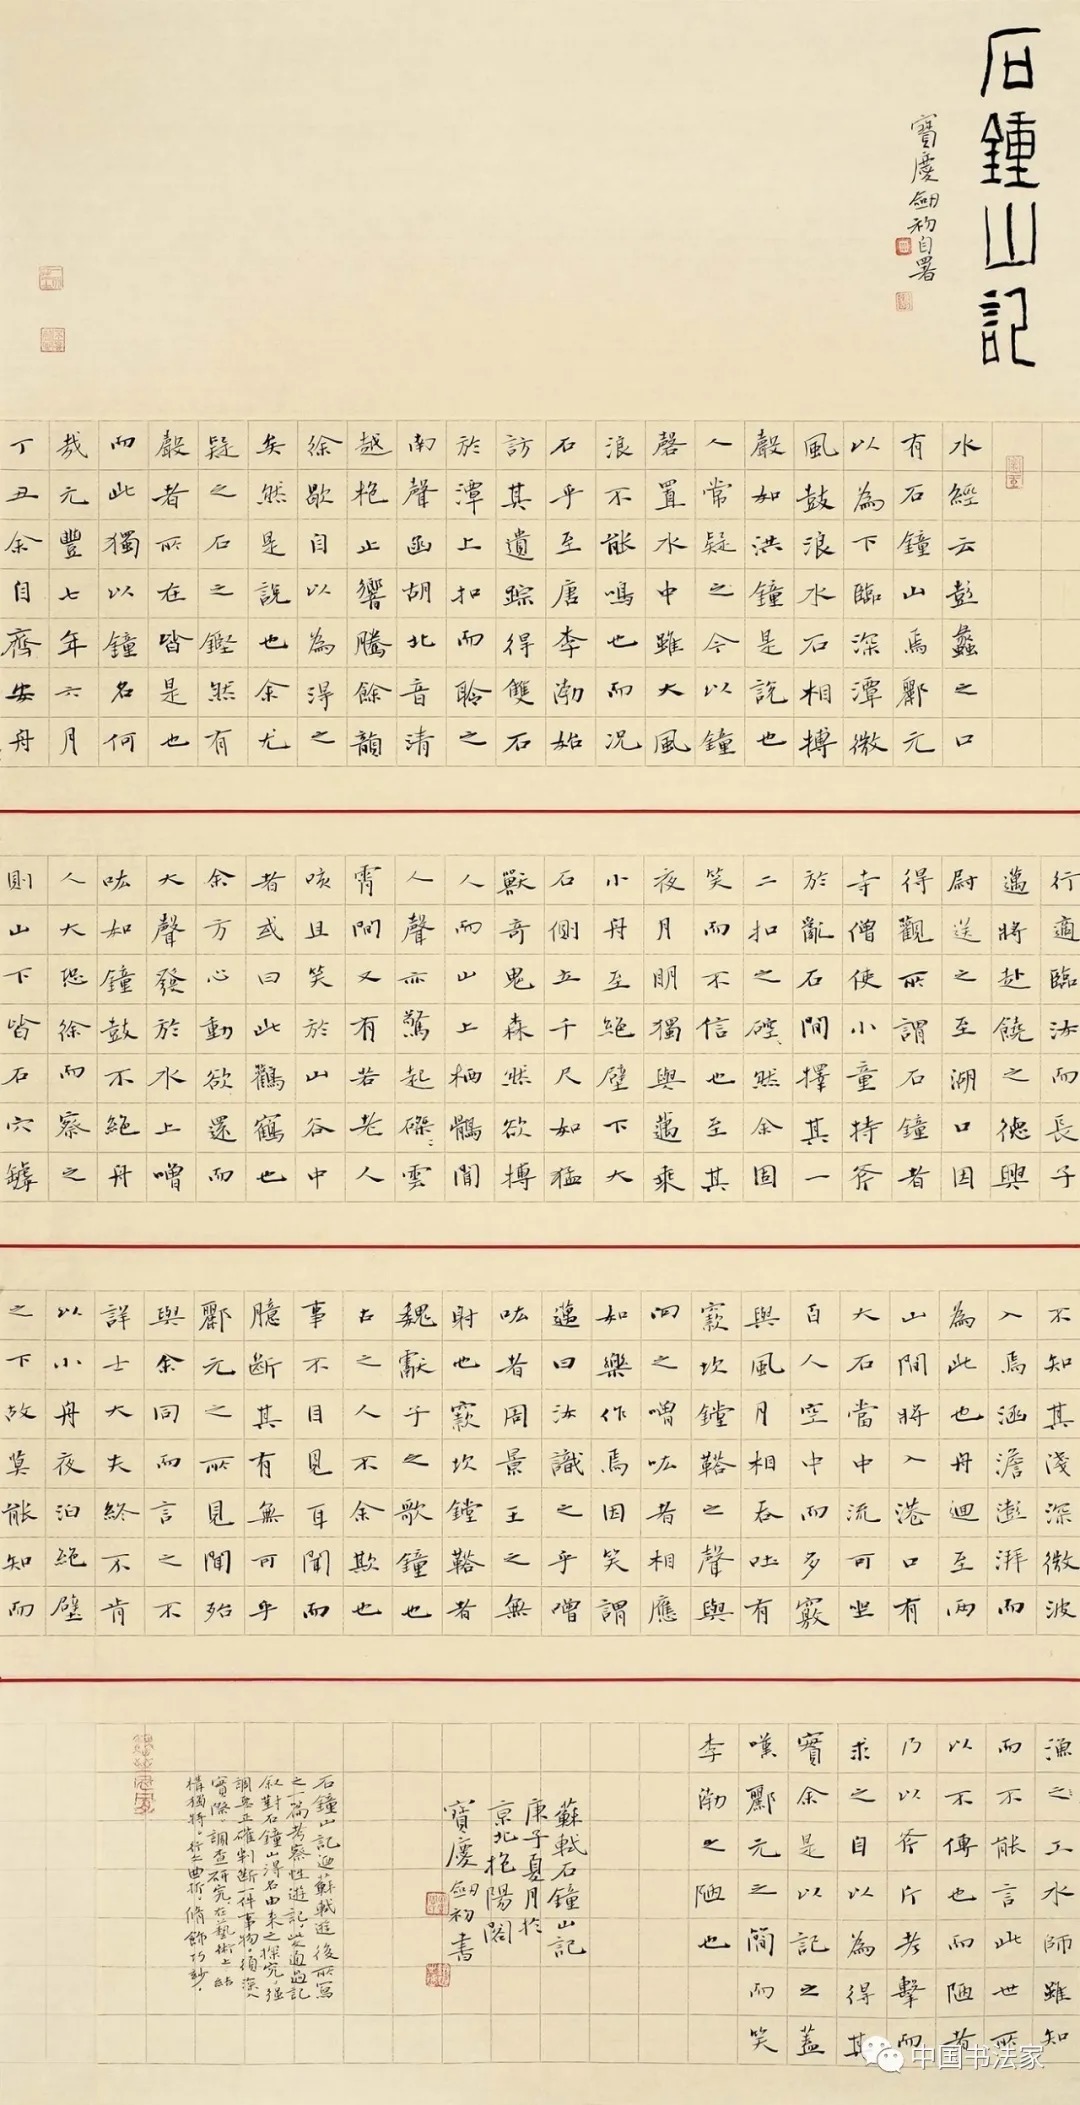 石鍾山記
寶慶劍初自署
水經云彭蠡之口
有石鐘山焉酈元
以為下臨深潭微
風鼓浪水石相搏
聲如洪鐘是說也
人常疑之今以鐘
磬置水中雖大風
浪不能鳴也而況
石乎至唐李渤始
訪其遺踪得雙石
於潭上扣而聆之
南聲函胡北音清
越枹止響騰餘韻
徐歇自以為得之
矣然是說也余尤
疑之石之鏗然有
聲者所在皆是也
而此獨以鐘名何
哉元豐七年六月
丁丑余自齊安舟
行適臨汝而長子
邁將赴饒之德興
尉送之至湖口因
得觀所謂石鐘者
寺僧使小童持斧
於亂石間擇其一
二扣之硿然余固
笑而不信也至其
夜月明獨與邁乘
小舟至絕壁下大
石側立千尺如猛
獸奇鬼森然欲搏
人而山上栖鶻聞
人聲亦驚起磔〻雲
霄間又有若老人
咳且笑於山谷中
者或曰此鸛鶴也
余方心動欲還而
大聲發於水上噌
吰如鐘鼓不絕舟
人大恐徐而察之
則山下皆石穴罅
不知其淺深微波
入焉涵澹澎湃而
為此也舟迴至兩
山間將入港口有
大石當中流可坐
百人空中而多竅
與風月相吞吐有
窾坎鏜鞳之聲與
向之噌吰者相應
如樂作焉因笑謂
邁曰汝識之乎噌
吰者周景王之無
射也窾坎鏜鞳者
魏獻子之歌鐘也
古之人不余欺也
事不目見耳聞而
臆斷其有無可乎
酈元之所見聞殆
與余同而言之不
詳士大夫終不肯
以小舟夜泊絕壁
之下故莫能知而
漁之工水師雖知
而不能言此世所
以不傳也而陋者
乃以斧斤考擊而
求之自以為得其
實余是以記之蓋
嘆酈元之簡而笑
李渤之陋也
蘇軾石鐘山記
庚子夏月於
京北抱陽閣
寶慶劍初書
石鐘山記迺蘇軾遊後所寫
之一篇考察性遊記此通過記
叙對石鐘山得名由來之探究強
調要正確判斷一件事物須深入
實際調查研究在藝術上結
構獨特行文曲折脩飾巧妙
中国书法家